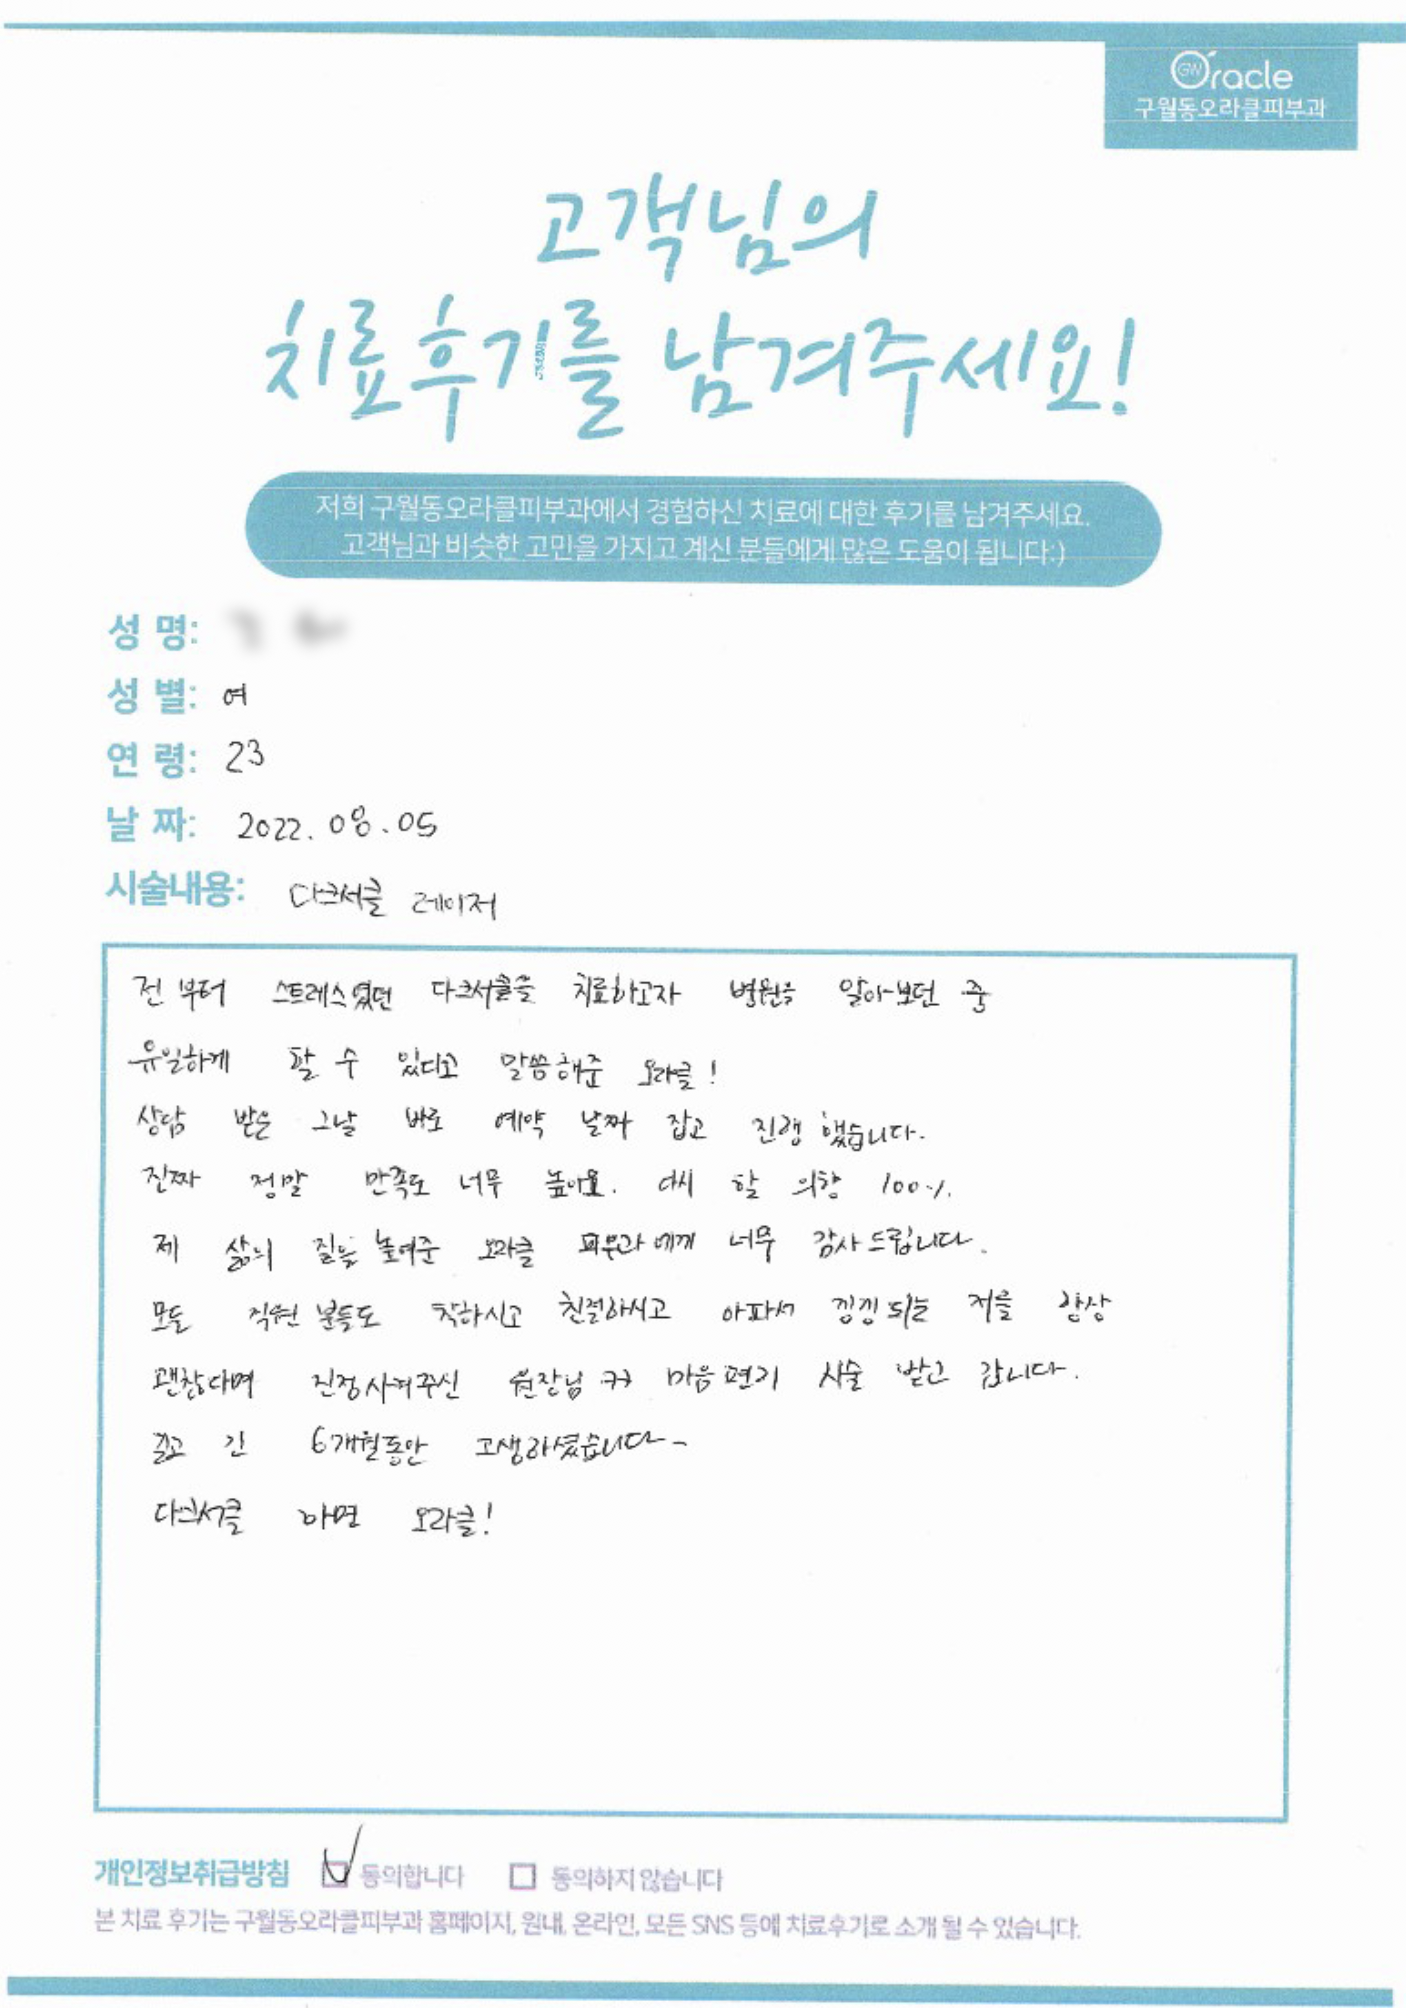 GW Oracle
구월동오라클피부과
고객님의
치료후기를 남겨주세요!
저희 구월동오라클피부과에서 경험하신 치료에 대한 후기를 남겨주세요.
고객님과 비슷한 고민을 가지고 계신 분들에게 많은 도움이 됩니다:)
성 명:
성 별: 여
연 령: 23
날 짜: 2022. 08. 05
시술내용: 다크서클 레이저
전 부터 스트레스였던 다크서클을 치료하고자 병원을 알아보던 중
유일하게 할 수 있다고 말씀해준 오라클!
상담 받은 그날 바로 예약 날짜 잡고 진행 했습니다.
진짜 정말 만족도 너무 높아요. 다시 할 의향 100%.
제 삶의 질을 높여준 오라클 피부과에게 너무 감사드립니다.
모든 직원 분들도 착하시고 친절하시고 아파서 낑낑되는 저를 항상
괜찮다며 진정시켜주신 원장님 ㅋㅋ 마음 편히 시술 받고 갑니다.
길고 긴 6개월동안 고생하셨습니다~
다크서클 하면 오라클!
개인정보취급방침 동의합니다 동의하지 않습니다
본 치료 후기는 구월동오라클피부과 홈페이지, 원내, 온라인, 모든 SNS 등에 치료후기로 소개 될 수 있습니다.